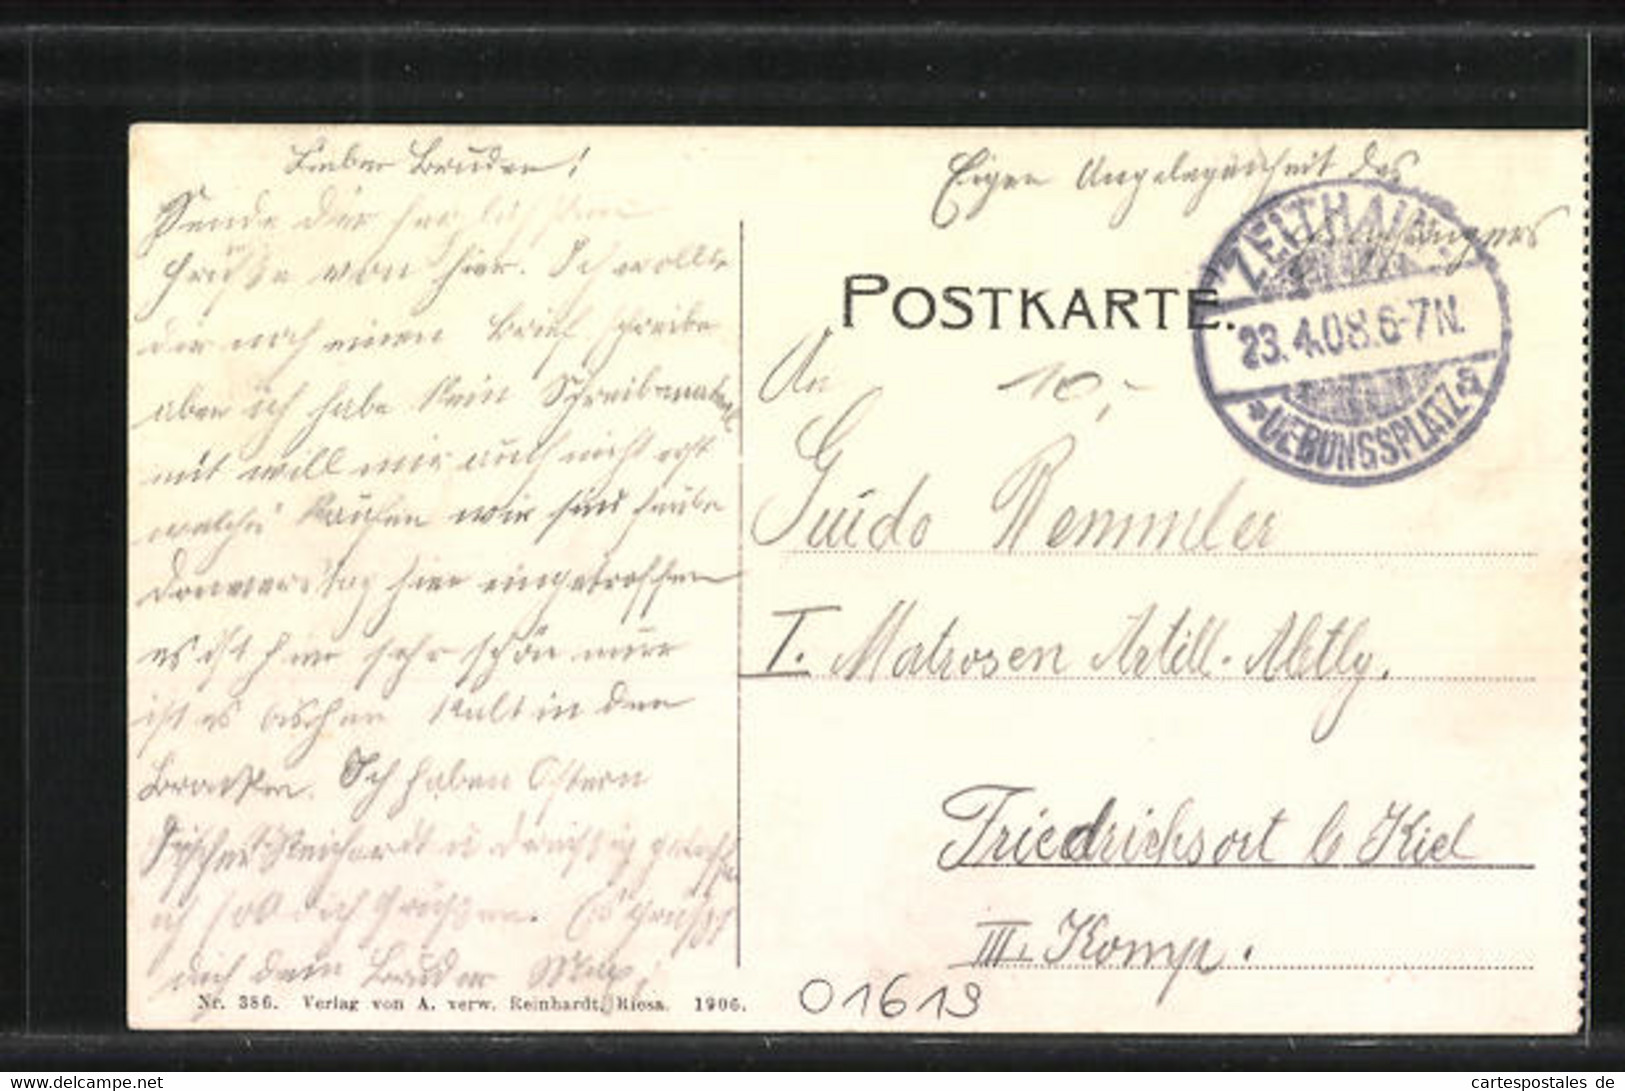 Lieber Bruder!
Sende dir herzlichsten
Grüße von hier. Ich wollte
dir noch einen Brief schreibe
aber ich habe kein Schreibmaterial
mit will mir auch nicht erst
welches kaufen wir sind heute
Donnerstag hier eingetroffen
es ist hier sehr schön nur
ist es bischen kalt in den
Baracken. Ich haben Ostern
Reichardt u getroffen
ich soll dich grüßen. Es grüßt
dich dein Bruder Max,
Nr. 386. Verlag von A. verw. Reinhardt, Riesa. 1906.
Eigen Angelegenheit des
Empfängers
POSTKARTE.
ZEITHAIN
23.4.08.6-7N.
UEBUNGSPLATZ
An
10,-
Guido Remmler
I. Matrosen Artill. Abtlg.
Friedrichsort b Kiel
III. Komp.
01619
www.cartespostales.de
cartespostales de